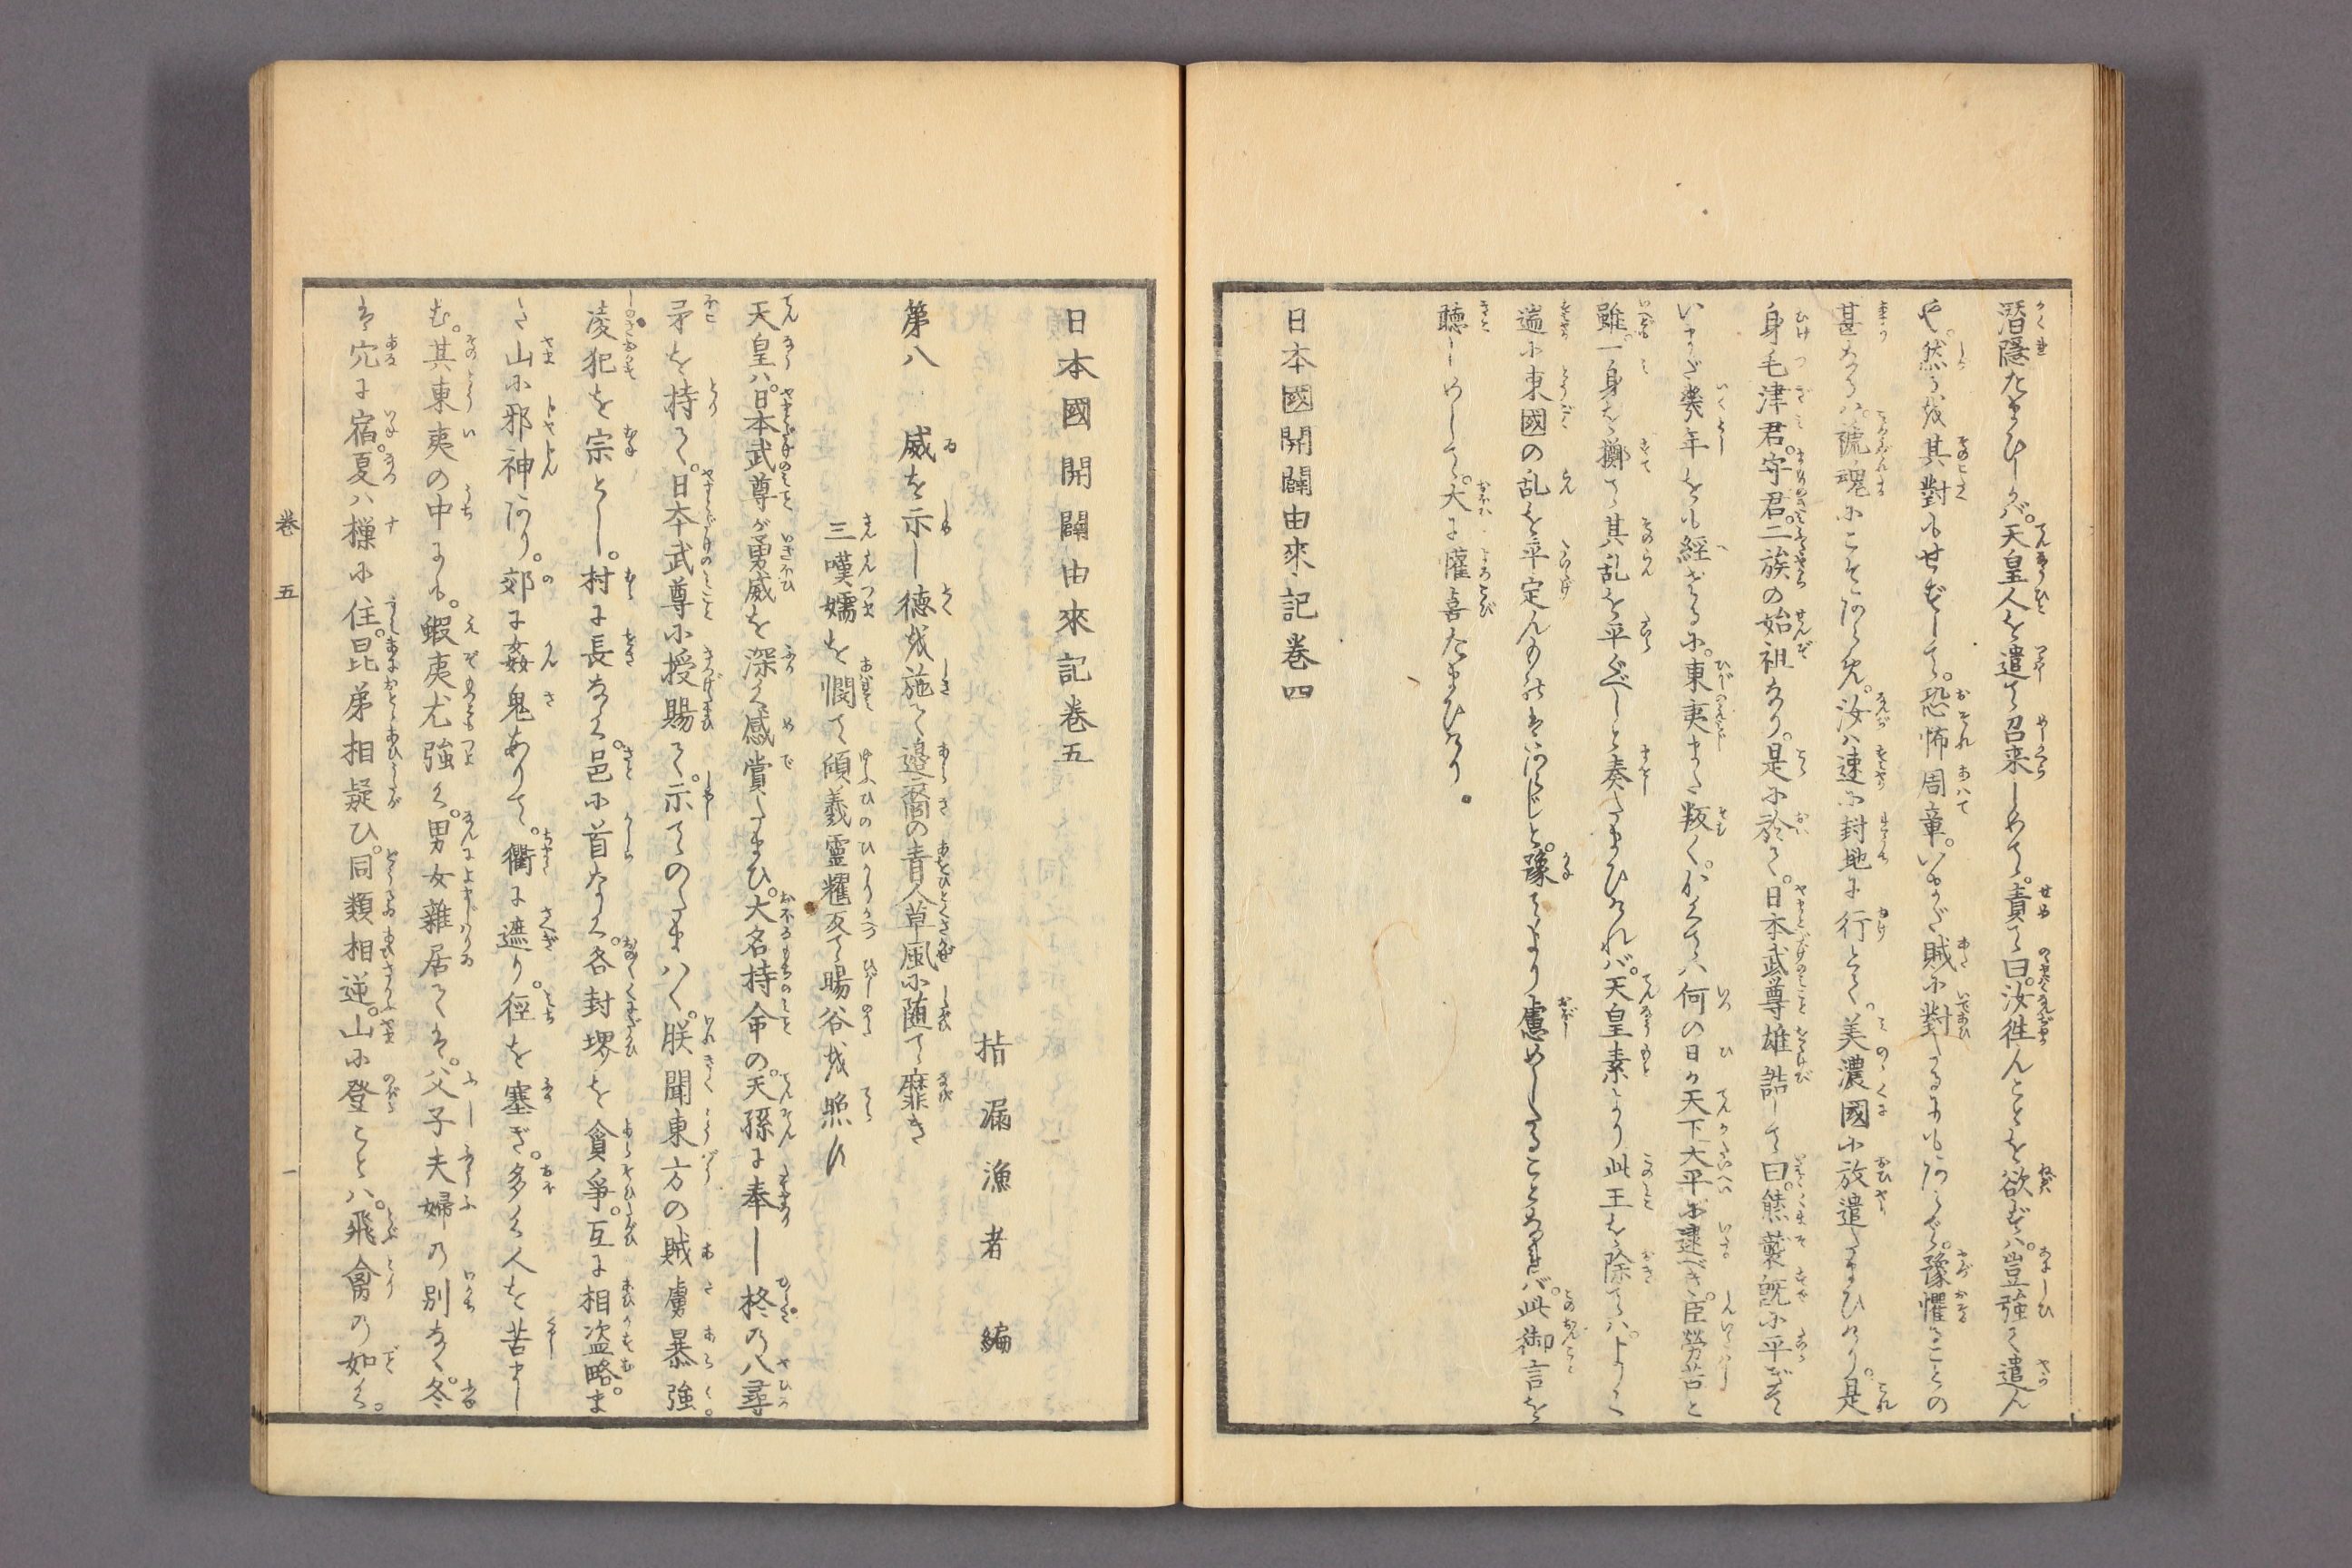 潜隠たまひしが。天皇人を遣て召来しめて。責て曰。汝往んことを欲ずは。豈強て遣ん
や。然るを其對もせずして。恐怖周章。いまだ賊に對ざるにも。豫懼ことの
甚なるは。汝は速に封地に行とて。美濃國に放遣たまひけり。是
身毛津君。守君。二族の始祖なり。是に於て。日本武尊雄誥して曰。熊襲既に平ぎて
いまだ幾年をも經ざるに。東夷また叛く。かくては何の日か天下大平に逮べき。臣労苦と
雖。一身を擲て其乱を平ぐべしと奏たまひければ。天皇素より此王を除ては。
遍に東國の乱を平定んものはあらじと。豫てより慮めしたることなれば。此御言を
聴しめして。大に懽喜たまひけり。
日本國開闢由來記巻四
日本國開闢由來記巻五
拮漏漁者 編
第八 威を示し徳を施て邉裔の青人草風に随て靡き
三嘆嬬を憫て傾羲靈耀反て暘谷を照す
天皇ハ。日本武尊が勇威を深く感賞たまひ。大名持命の。天孫に奉し柊の八尋
矛を持て。日本武尊に授賜て。示てのたまはく。朕聞東方の賊虜暴強。
凌犯を宗とし。村に長なく。邑に首なく。各封堺を貪爭。互に相盗略。ま
た山に邪神あり。郊に姦鬼ありて。衢に遮り。徑を塞ぎ。多く人を苦まし
む。其東夷の中にも。蝦夷尤強く。男女雜居て。父子夫婦の別なく。冬
は穴に宿。夏ハ樔に住。昆弟相疑ひ。同類相逆。山に登ことハ。飛禽の如く。
巻五
一